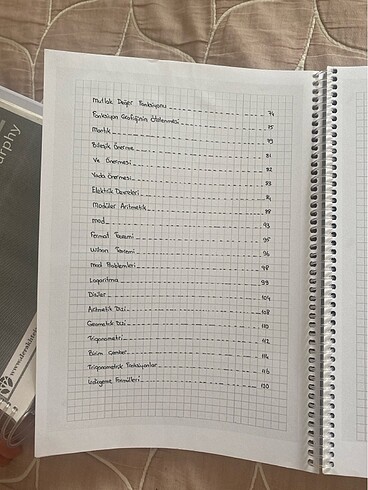 Mutlak Değer Fonksiyonu 74
Fonksiyon Grafiğinin Ötelenmesi 75
Mantık 79
Bileşik Önerme 81
Ve Önermesi 82
Yada Önermesi 83
Elektrik Devreleri 84
Modüler Aritmetik 88
mod 93
Fermat Teoremi 95
Wilson Teoremi 96
Mod Problemleri 98
Logaritma 99
Diziler 104
Aritmetik Dizi 108
Geometrik Dizi 110
Trigonometri 112
Birim Çember 114
Trigonometrik Fonksiyonlar 116
İndirgeme Formülleri 120